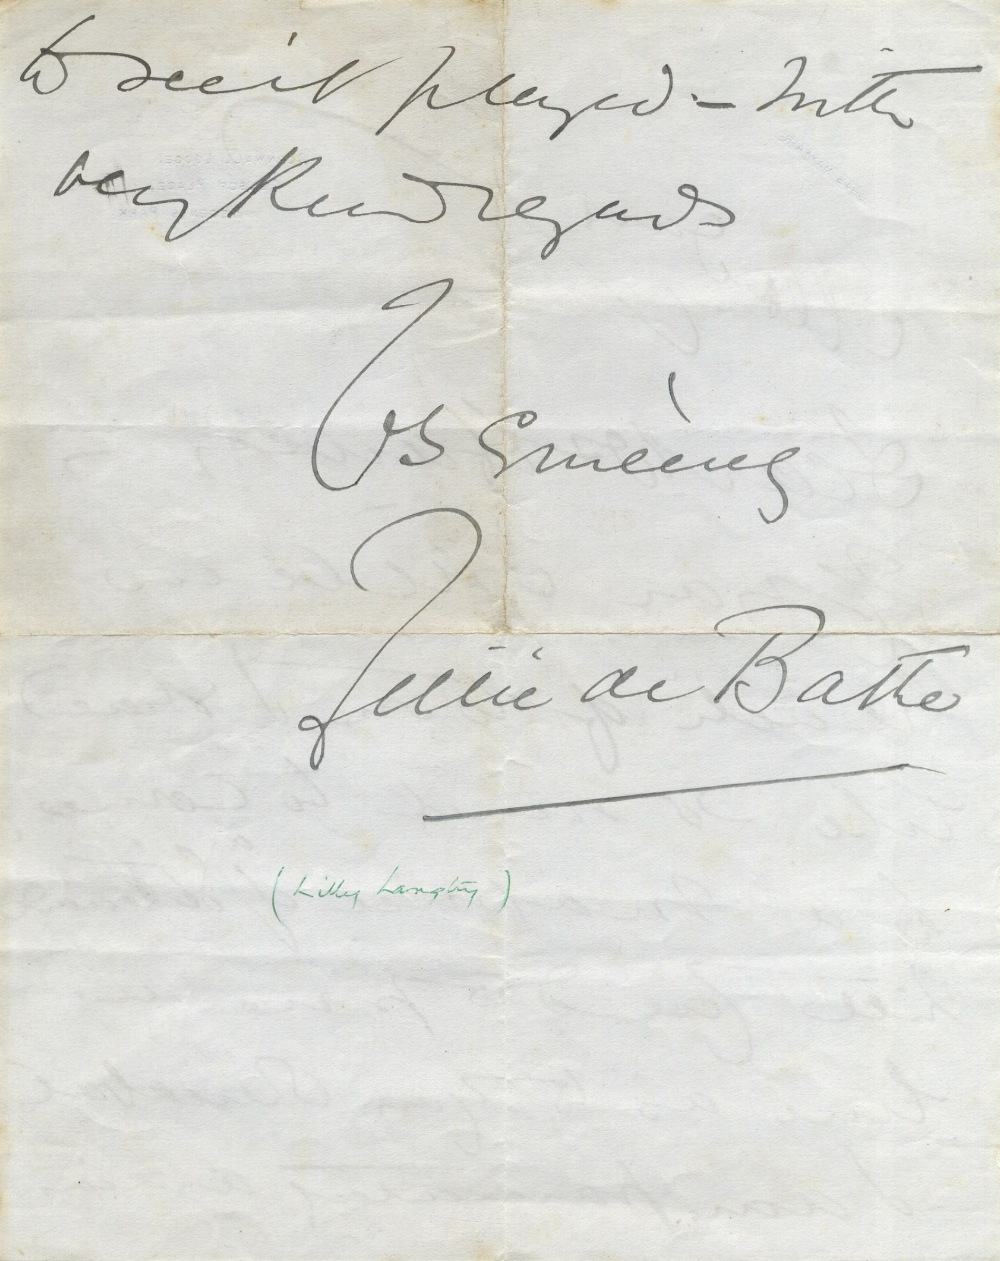 to see it played – With
very Kind regards
Yrs Sincerely
Lillie de Bathe
(Lilly Langtry)